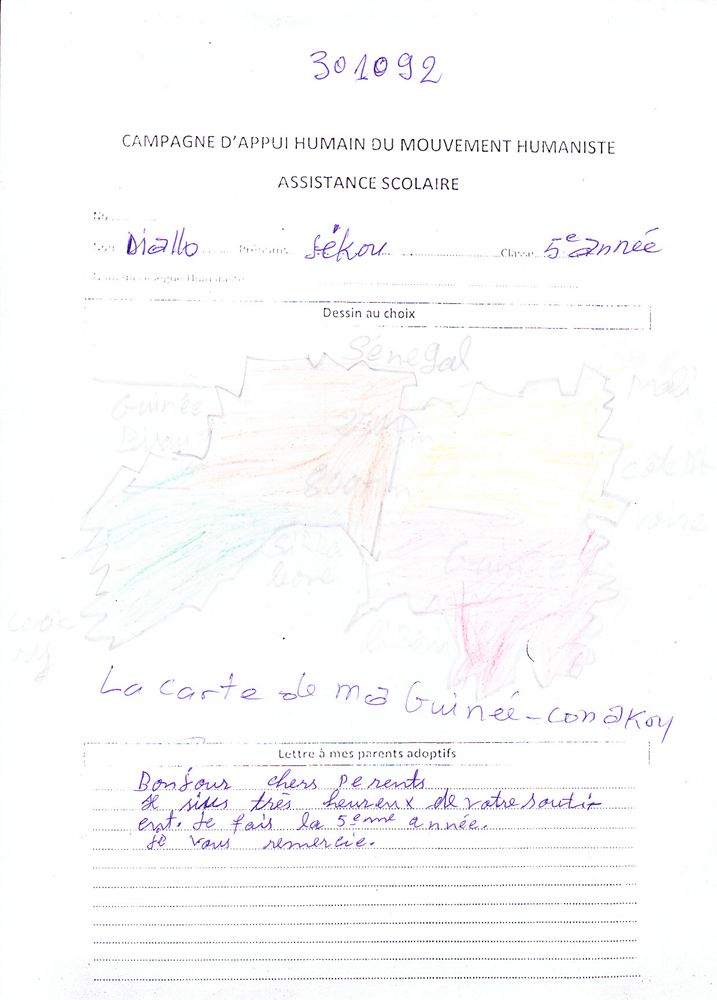 301092
CAMPAGNE D'APPUI HUMAIN DU MOUVEMENT HUMANISTE
ASSISTANCE SCOLAIRE
No
Nom Diallo Prénoms Sékou Classe 5e année
Dessin au choix
Sénegal
Guinée
Bissau
Mali
côte
voire
Guinée
leone
La carte de ma Guinée-conakoy
Lettre à mes parents adoptifs
Bonjour chers perents
Je siuis très heureux de votre souti-
ent. Je fais la 5eme année.
Je vous remercie.